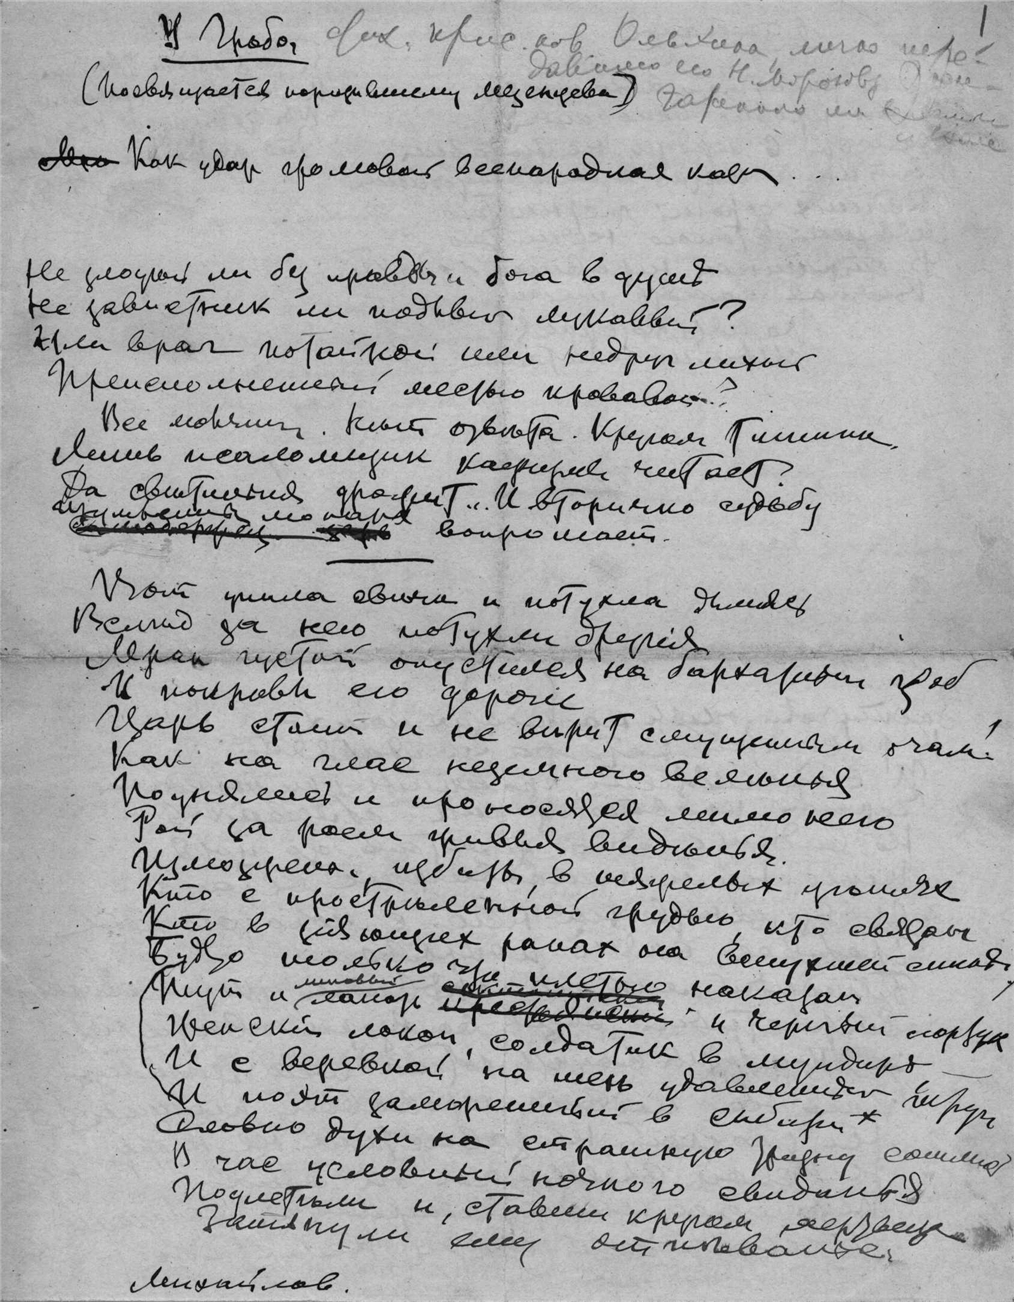 У Гроба.
(Посвящается поразившему Мезенцева)
1
Как удар громовой всенародная казнь ...
Не злодей ли без правды и бога в душе
Не завистник ли подлый лукавый?
Или враг потайной или недруг лихой
Преисполненный местью кровавой?
Все молчит. Нет ответа. Кругом тишина,
Лишь псаломщик читает?
Да светильня дрожит... И вторично судьбу
монарх вопрошает.
Вот уныла свеча и потухла дымясь
Вслед за нею потухли другия
Мрак густой опустился на бархатный гроб
И покровы его дорогие
Царь стоит и не верит смущенным очам:
Как на глас неземного веленья
Поднялись и проносятся мимо него
Рой за роем привея виденья.
Измождены, избиты, в тяжелых цепях
Кто с простреленной грудью, кто связан
Кто в зияющих ранах на вспухшей спине
Будто только что плетью наказан
Тут и лапоть и черный
Женский локон, солдатик в мундире
И с веревкой на шее удавленный труп
И поэт заморенный в Сибири х
Словно духи на страшную тризну сошлись
В час условный ночного свиданья
Подлетели и, ставши кругом мертвеца
Затянули ему отпеванье.
Михайлов.